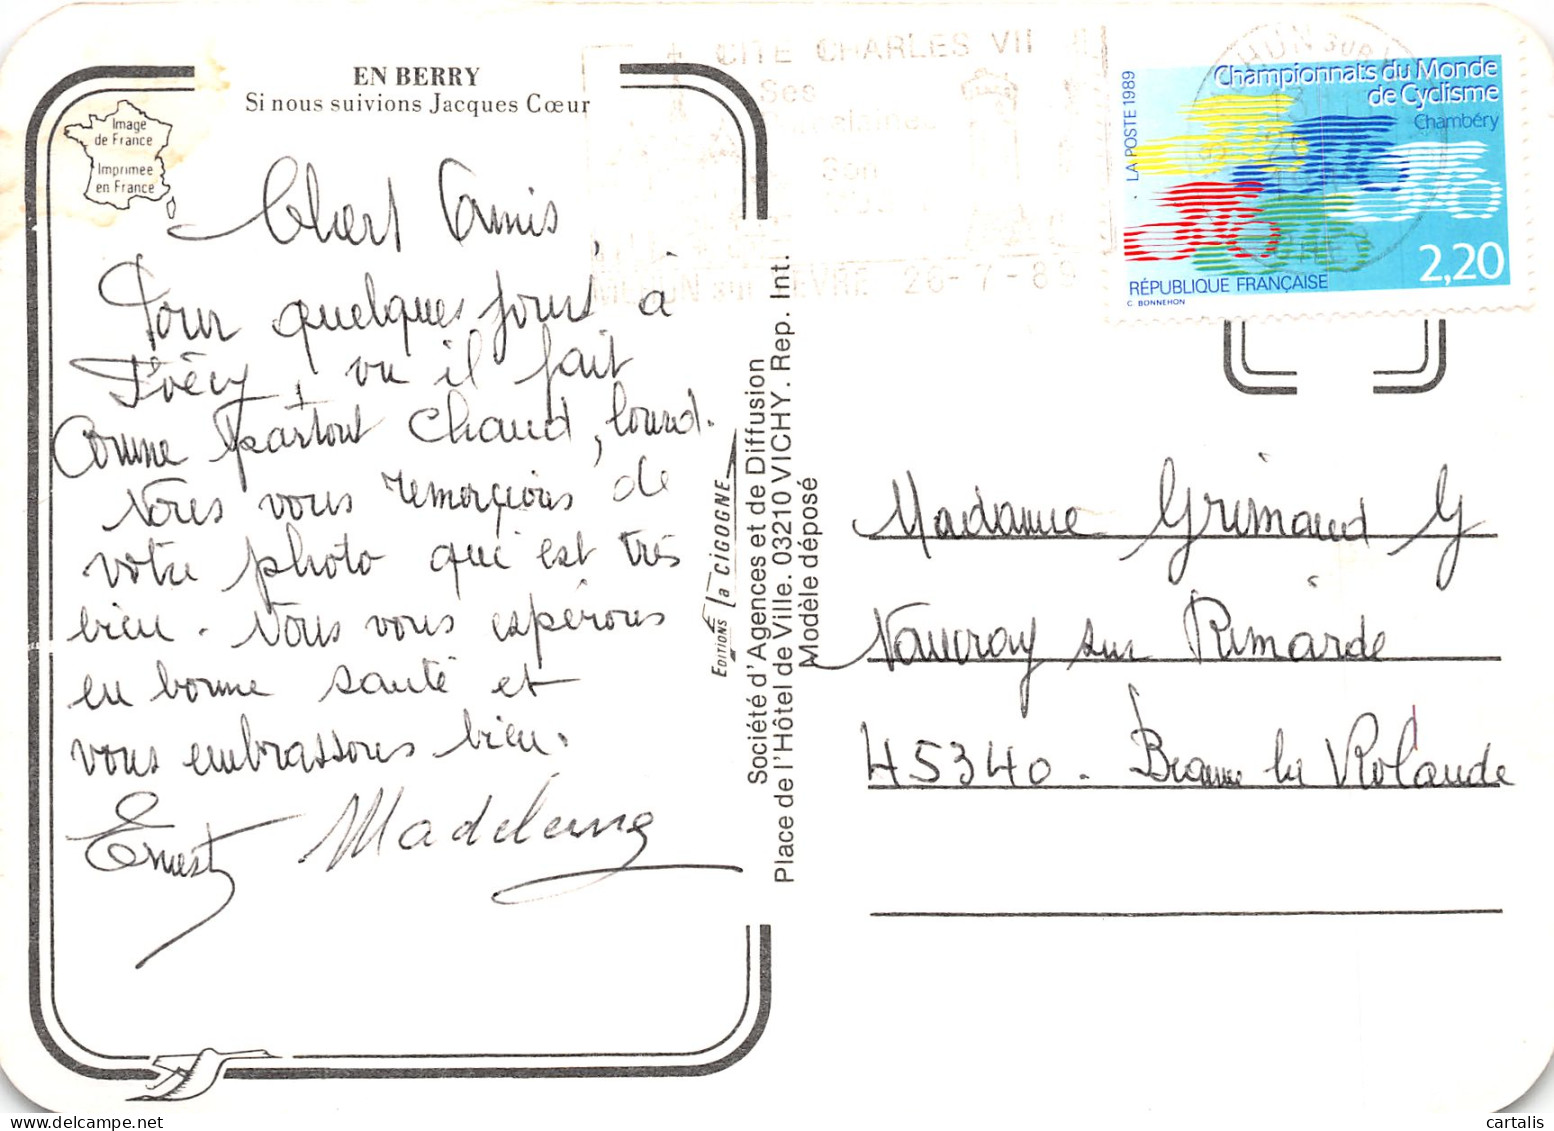 EN BERRY
Si nous suivions Jacques Cœur
Image
de France
Imprimée
en France
Chers Amis,
Pour quelques jours à
Foëcy, vu il fait
comme partout chaud, lourd.
Nous vous remercions de
votre photo qui est très
bien. Nous vous espérons
en bonne santé et
vous embrassons bien.
Ernest Madeleine
EDITIONS la CIGOGNE
Société d'Agences et de Diffusion
Place de l'Hôtel de Ville. 03210 VICHY. Rep. Int.
Modèle déposé
CITE CHARLES VII
Ses
Son
SUR YEVRE 26-7-89
LA POSTE 1989
Championnats du Monde
de Cyclisme
Chambéry
2,20
RÉPUBLIQUE FRANÇAISE
C. BONNEHON
Madame Grimaud G
Nancray sur Rimarde
45340. Beaune la Rolande
cartalis